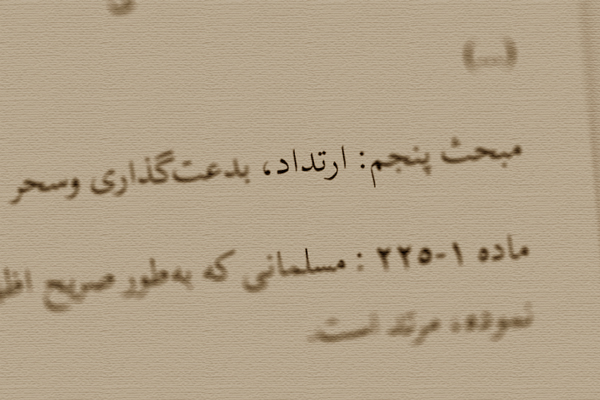 (...)
مبحث پنجم: ارتداد، بدعت‌گذاری وسحر
ماده ۱-۲۲۵ : مسلمانی که به‌طور صریح
نموده، مرتد است.